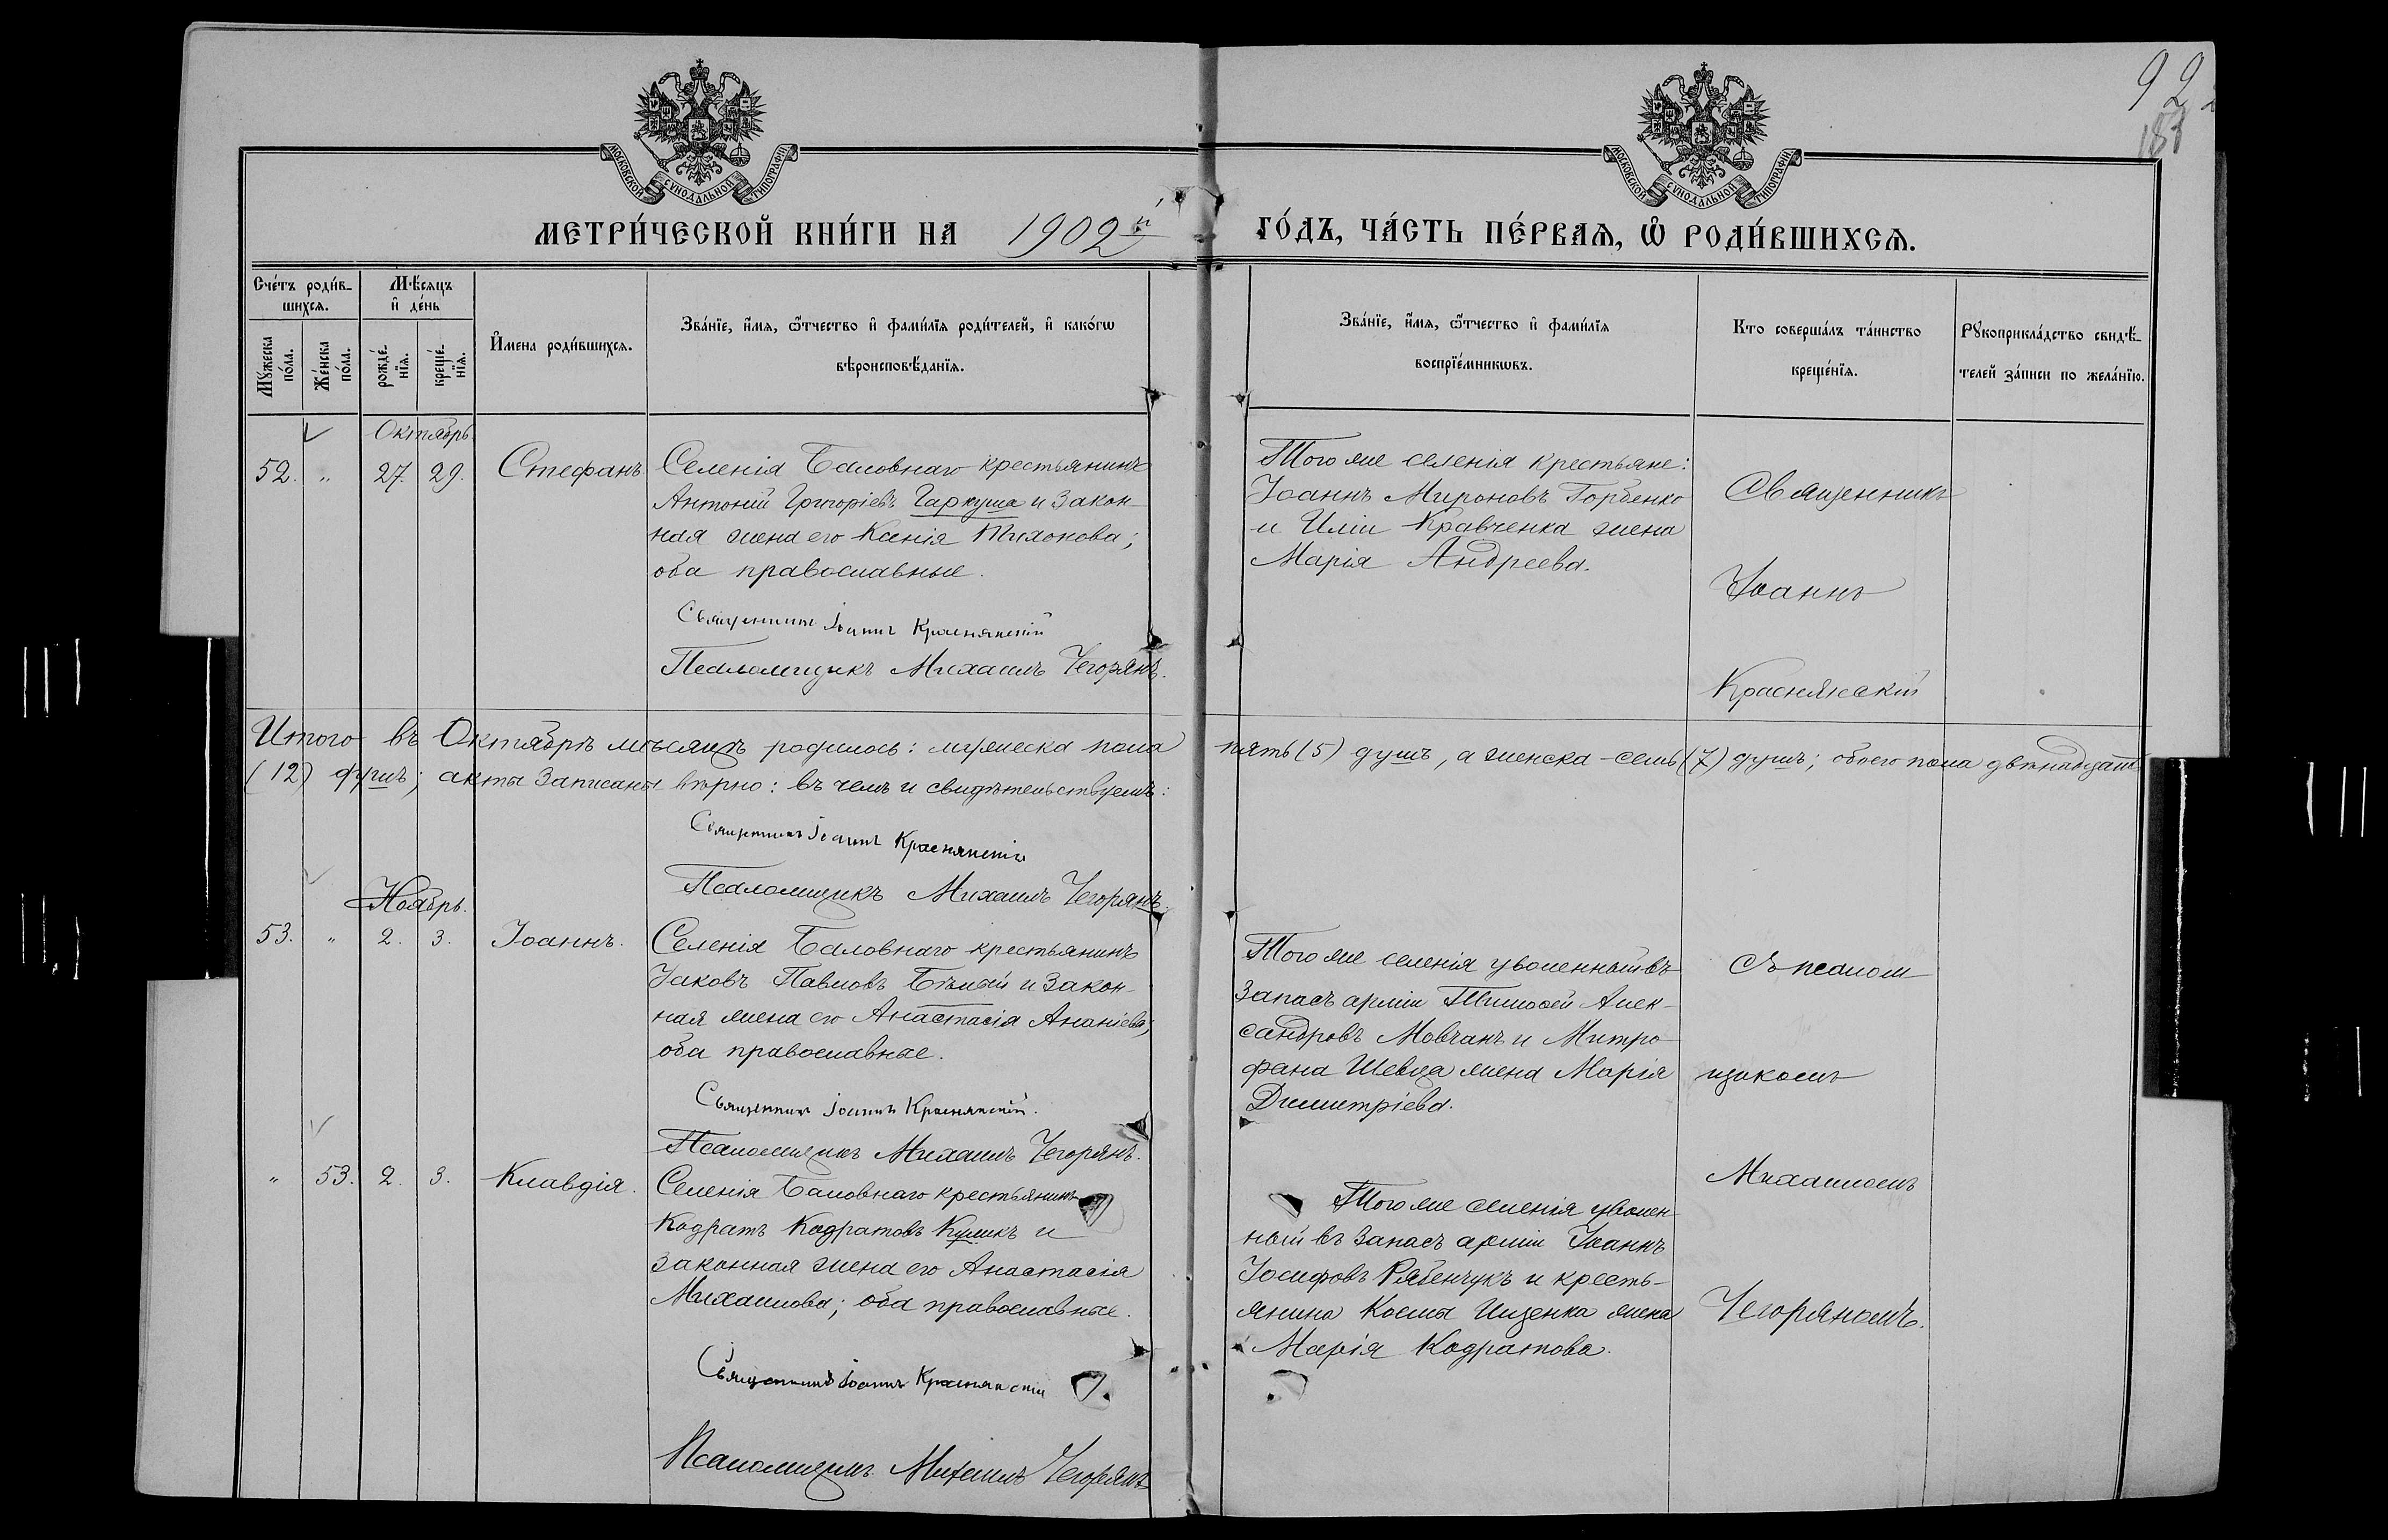 92
183
МОСКОВСКОЙ СѴНОДАЛЬНОЙ ТИПОГРАФІИ
МОСКОВСКОЙ СѴНОДАЛЬНОЙ ТИПОГРАФІИ
МЕТРИ́ЧЕСКОЙ КНИ́ГИ НА 1902й ГО́ДЪ, ЧА́СТЬ ПЕ́РВАѦ, Ѽ РОДИ́ВШИХСѦ.
Сче́тъ роди́в-
шихсѧ.
Мѣ́сѧцъ
и҆ де́нь
Мꙋ́жеска
по́ла.
Же́нска
по́ла.
рожде́-
нїѧ.
креще́-
нїѧ.
И҆мена роди́вшихсѧ.
Зва́нїе, и҆́мѧ, ѻ҆́тчество и҆ фами́лїѧ роди́телей, и҆ како́гѡ
вѣроисповѣ́данїѧ.
Зва́нїе, и҆́мѧ, ѻ҆́тчество и҆ фами́лїѧ
воспрїе́мникѡвъ.
Кто соверша́лъ та́инство
креще́нїѧ.
Рꙋкоприкла́дство свидѣ́-
телей за́писи по жела́нїю.
Октябрь
52. „ 27. 29. Стефанъ
Селенія Баловнаго крестьянинъ
Антоній Григоріевъ Гаркуша и закон-
ная жена его Ксенія Тихонова;
оба православные.
Священникъ Іоаннъ Краснянскій
Псаломщикъ Михаилъ Чегорянъ.
Того же селенія крестьяне:
Іоаннъ Мироновъ Горбенко
и Иліи Кравченка жена
Марія Андреева.
Священникъ
Іоаннъ
Краснянскій
Итого въ Октябрѣ мѣсяцѣ родилось: мужеска пола пять (5) душъ, а женска - семь (7) душъ; обоего пола двѣнадцать
(12) душъ; акты записаны вѣрно: въ чемъ и свидѣтельствуемъ:
Священникъ Іоаннъ Краснянскій
Псаломщикъ Михаилъ Чегорянъ.
Ноябрь.
53. „ 2. 3. Іоаннъ.
Селенія Баловнаго крестьянинъ
Іаковъ Павловъ Бѣлый и закон-
ная жена его Анастасія Ананіева;
оба православные.
Священникъ Іоаннъ Краснянскій.
Псаломщикъ Михаилъ Чегорянъ.
Того же селенія уволенный въ
запасъ арміи Тимоѳей Алек-
сандровъ Мовчанъ и Митро-
фана Шевца жена Марія
Димитріева.
Съ псалом
щикомъ
Михаиломъ
Чегоряномъ.
„ 53. 2. 3. Клавдія.
Селенія Баловнаго крестьянинъ
Кодратъ Кодратовъ Куликъ и
законная жена его Анастасія
Михаилова; оба православные.
Священникъ Іоаннъ Краснянскій
Псаломщикъ Михаилъ Чегорянъ
Того же селенія уволен-
ный въ запасъ арміи Іоаннъ
Іосифовъ Рябенчукъ и кресть-
янина Космы Ищенка жена
Марія Кодратова.